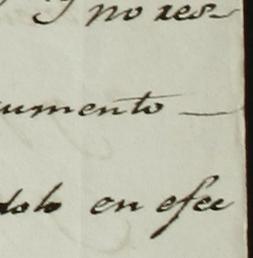 y no res-
umento —
dolo en efec